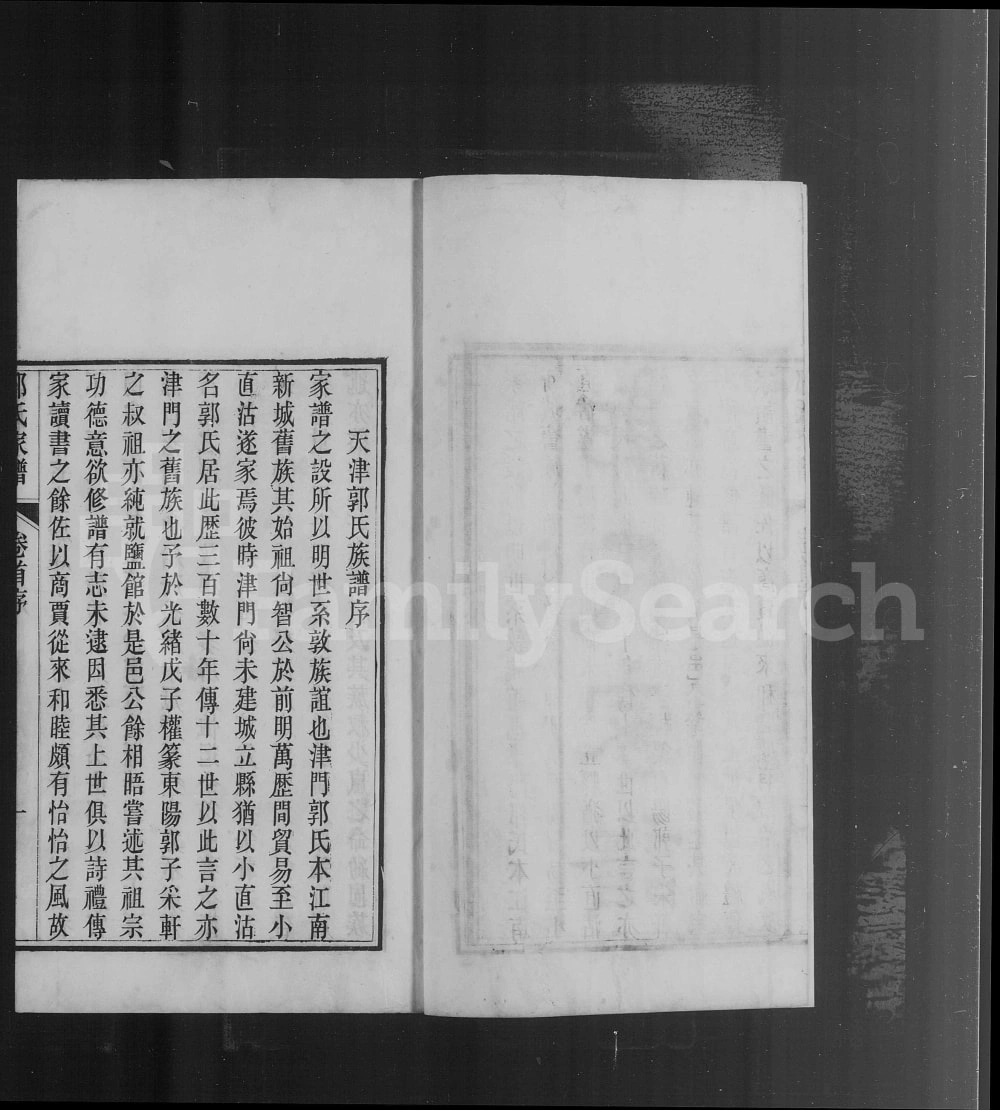 天津郭氏族譜序
家譜之設所以明世系敦族誼也津門郭氏本江南
新城舊族其始祖尙智公於前明萬歷間貿易至小
直沽遂家焉彼時津門尙未建城立縣猶以小直沽
名郭氏居此歷三百數十年傳十二世以此言之亦
津門之舊族也予於光緒戊子權篆東陽郭子采軒
之叔祖亦純就鹽館於是邑公餘相晤嘗述其祖宗
功德意欲修譜有志未逮因悉其上世俱以詩禮傳
家讀書之餘佐以商賈從來和睦頗有怡怡之風故
郭氏家譜 卷首序 一
FamilySearch